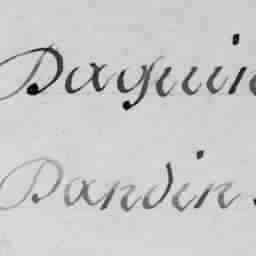 Daguin
Dandin.